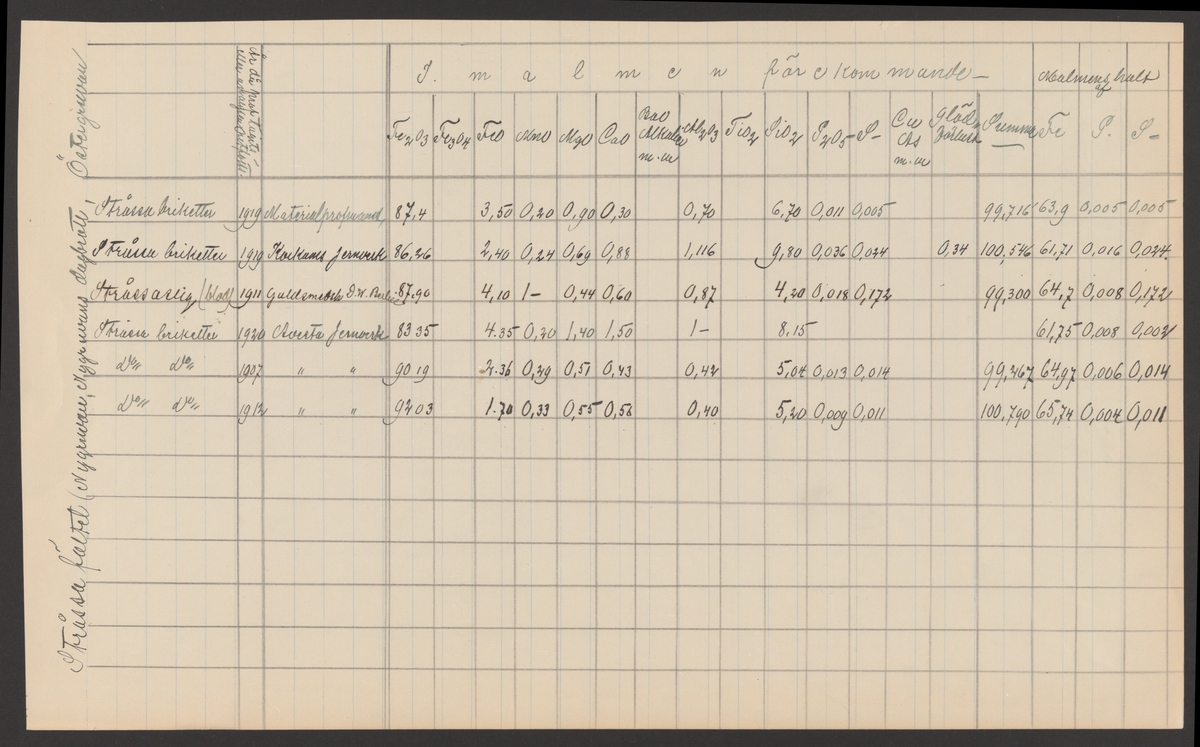 Stråssa fältet (Nygruvan, Nygruvans dagbrott, Östergruvan
I malmen förekommande Malmens halt af
Fe2O3 Fe3O4 FeO MnO MgO CaO BaO Alkalier m.m Al2O3 TiO2 SiO2 P2O5 S Cu As m.m Glödförlust Summa Fe P. S
Stråssa briketter 1919 Materialprofvand, 87,4 3,50 0,20 0,90 0,30 0,70 6,70 0,011 0,005 99,716 63,9 0,005 0,005
Stråssa briketter 1919 Kockums Jernverk 86,26 2,40 0,24 0,69 0,88 1,116 9,80 0,036 0,024 0,34 100,546 61,71 0,016 0,024
Stråssaslig 1911 87,90 4,10 1- 0,44 0,60 0,87 4,20 0,018 0,172 99,300 64,7 0,008 0,172
Stråssa briketter 1920 Avesta Jernverk 83 35 4.35 0,20 1,40 1,50 1- 8,15 61,75 0,008 0,002
Do„ Do„ 1907 „ „ 90 19 2.36 0,29 0,51 0,43 0,42 5,04 0,013 0,014 99,267 64,97 0,006 0,014
Do„ Do„ 1912 „ „ 92 03 1.70 0,33 0,55 0,58 0,40 5,20 0,009 0,011 100,790 65,74 0,004 0,011